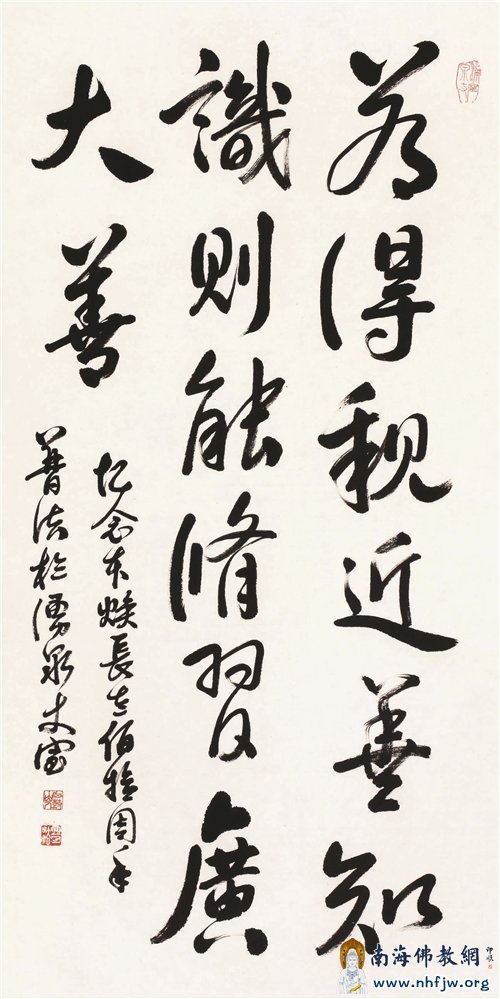 若得親近善知
識則能脩習廣
大善
忆念本焕長老佰拾周年
普法於湧泉丈室
南海佛教網
www.nhfjw.org